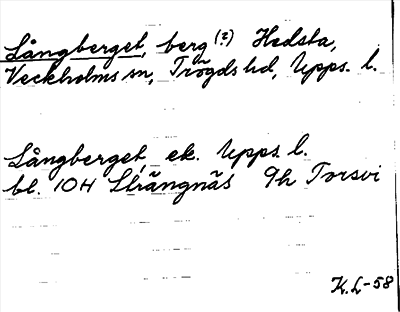 Långberget, berg (?) Hedsta,
Veckholms sn, Trögds hd, Upps. l.
Långberget, ek. Upps. l.
bl. 10H Strängnäs 9h Torsvi
K.L-58